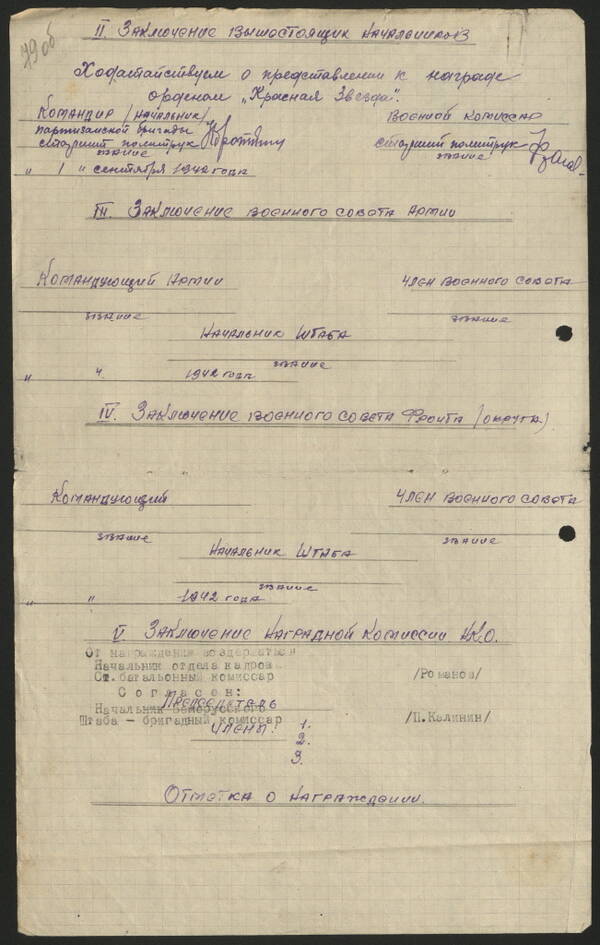 79об
II. Заключение вышестоящих начальников
Ходатайствуем о представлении к награде
орденом „Красная Звезда".
Командир (начальник)
партизанской бригады
старший политрук
звание
„ 1 " сентября 1942 года
Военной комиссар
старший политрук
звание
III. Заключение военного совета Армии
Командующий Армии
Член военного совета
звание
звание
Начальник Штаба
звание
„ " 1942 года
IV. Заключение военного совета Фронта (округа)
Командующий
Член военного совета
звание
звание
Начальник Штаба
звание
„ " 1942 года
V. Заключение Наградной Комиссии НКО.
От награждения воздержаться
Начальник отдела кадров
Ст. батальонный комиссар /Романов/
Согласен:
Председатель
Начальник Белорусского
Штаба – бригадный комиссар /П.Калинин/
Члены: 1.
2.
3.
Отметка о награждении.